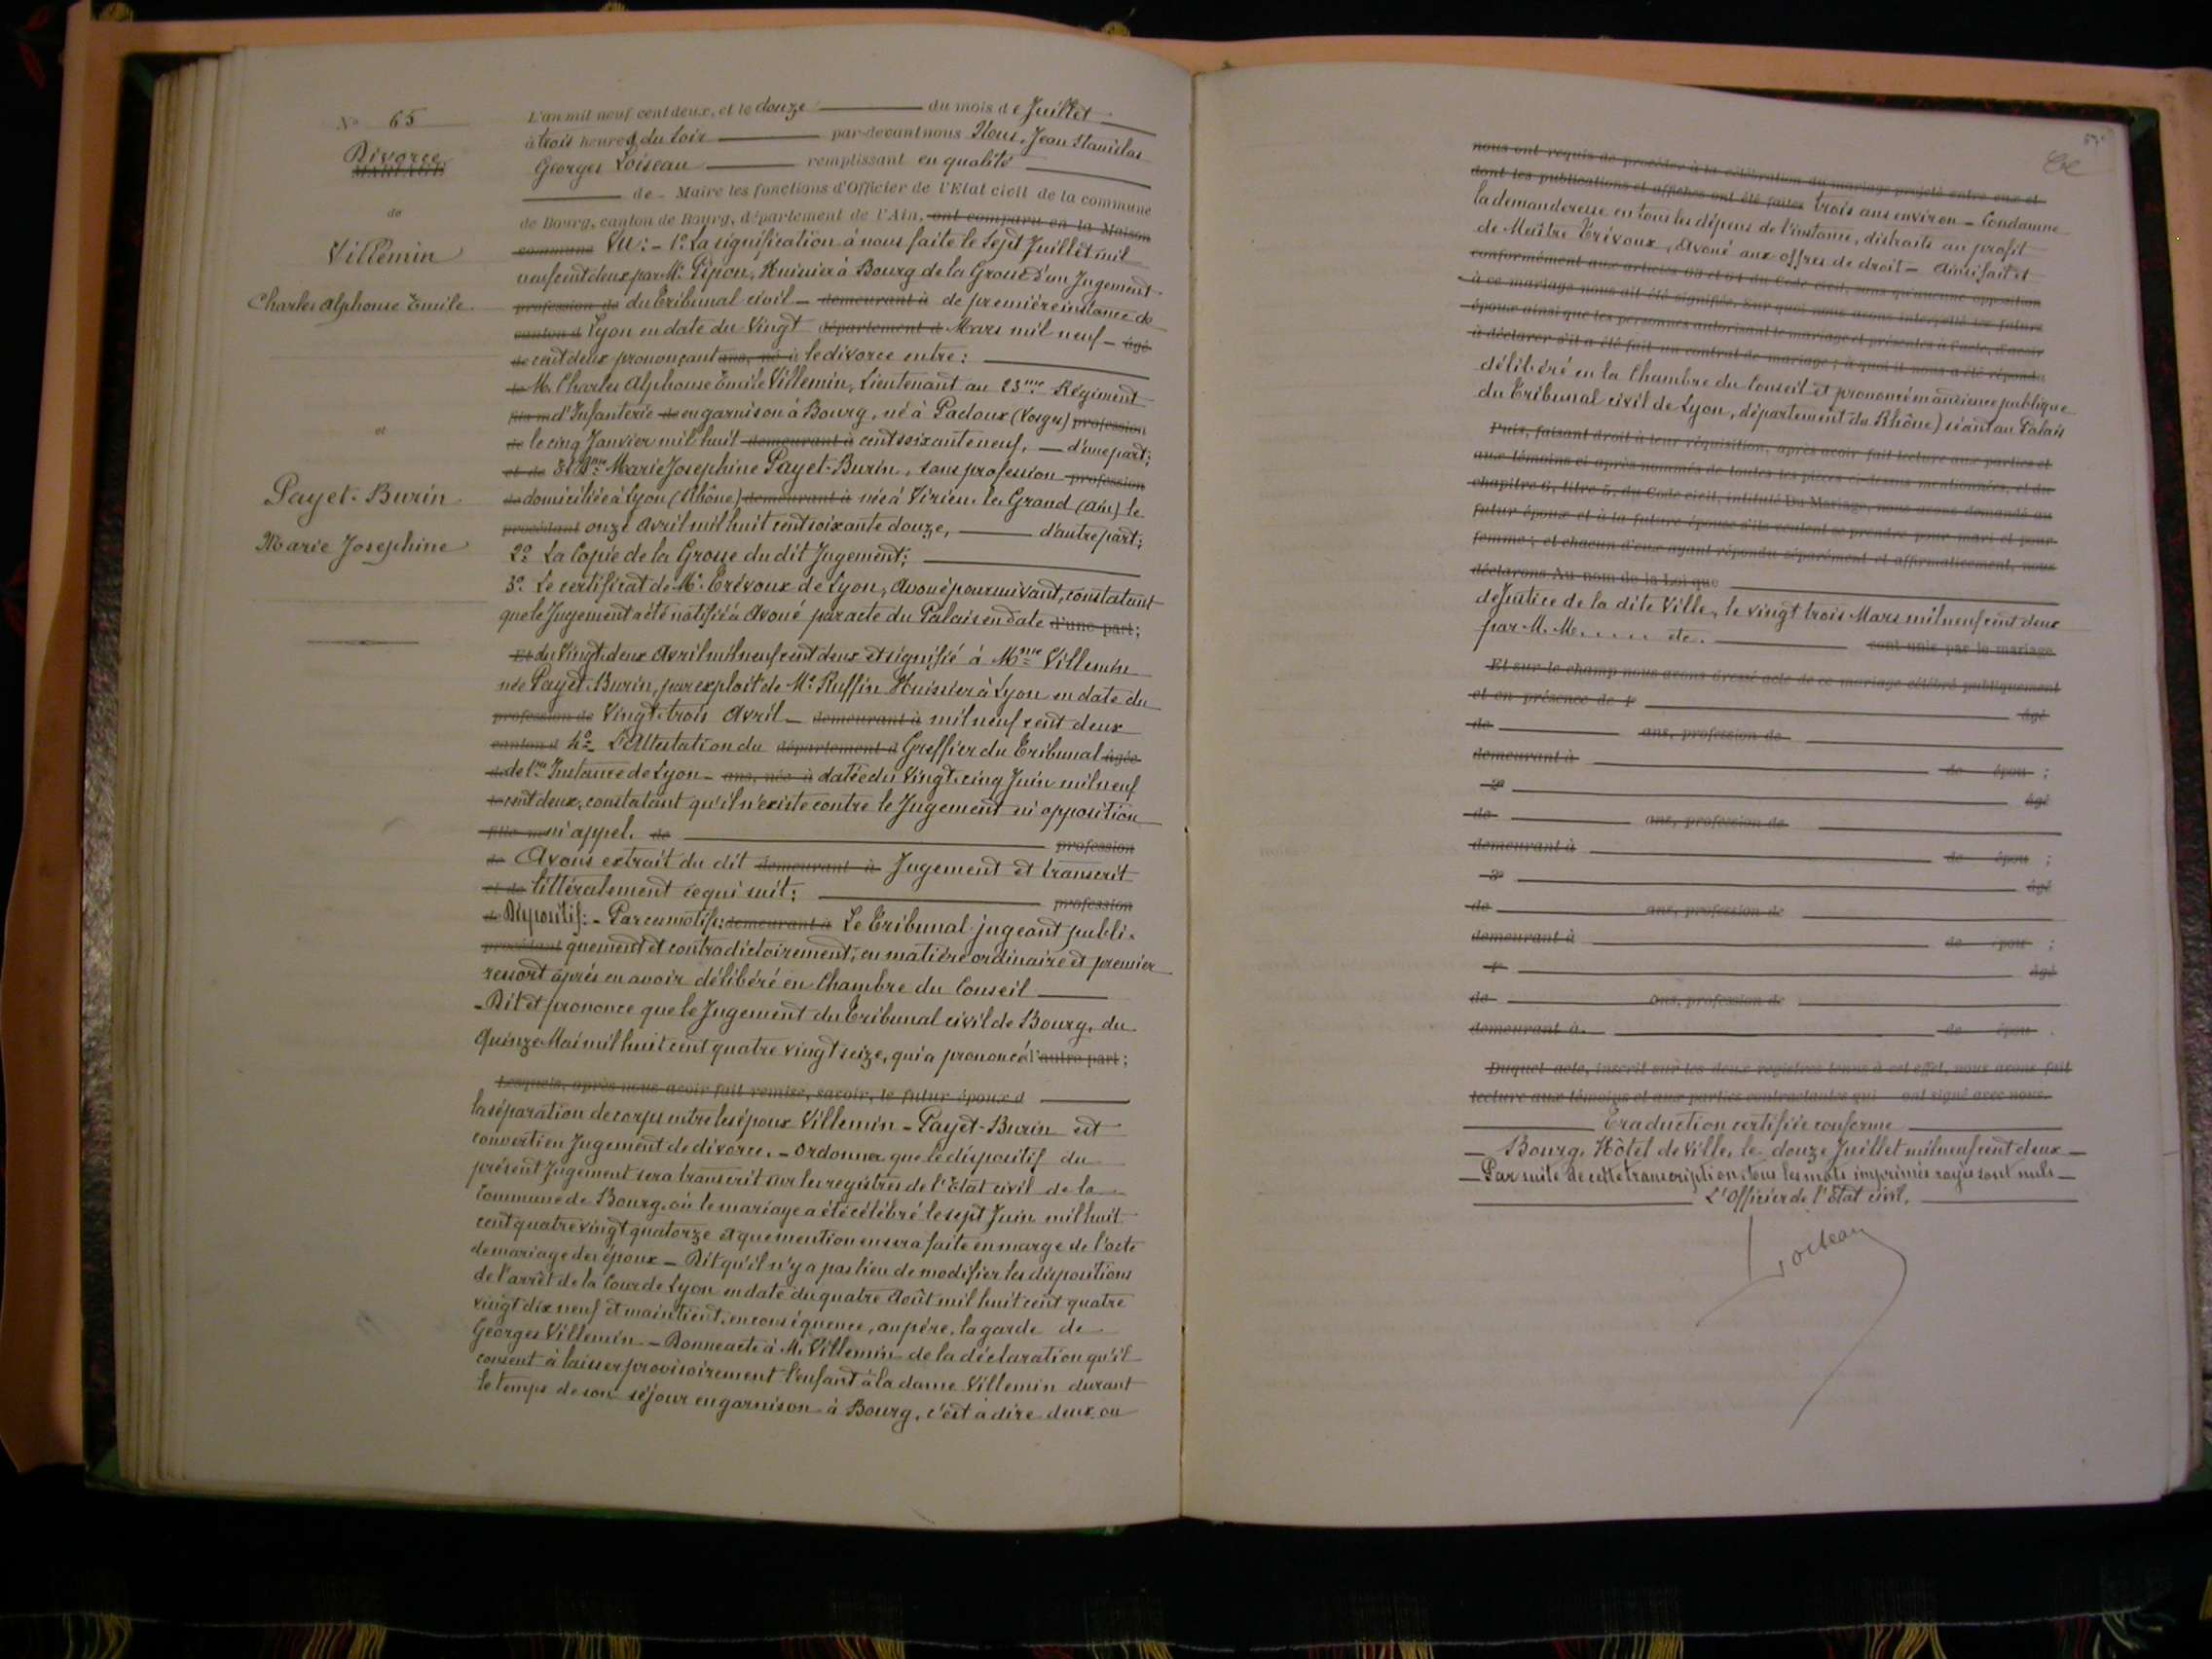 No 65
Divorce
MARIAGE
de
Villemin
Charles Alphonse Emile
et
Payet-Burin
Marie Josephine
L'an mil neuf cent deux, et le douze du mois de Juillet
à trois heures du soir par-devant nous Nous, Jean Stanislas
Georges Loiseau remplissant en qualité
de Maire les fonctions d'Officier de l'Etat civil de la commune
de Bourg, canton de Bourg, département de l'Ain, ont comparu en la Maison
commune Vu: - 1o La signification à nous faite le sept Juillet mil
neuf cent deux par Me Pépon, Huissier à Bourg de la Grosse d'un Jugement
profession de du Tribunal civil - demeurant à de première instance de
canton d Lyon en date du Vingt département d Mars mil neuf - âgé
de cent deux prononçant ans, né à le divorce entre:
de M. Charles Alphonse Emile Villemin, Lieutenant au 23me Régiment
fils m d'Infanterie de en garnison à Bourg, né à Padoux (Vosges) profession
de le cinq Janvier mil huit demeurant à cent soixante neuf, - d'une part;
et de Et Dme Marie Josephine Payet-Burin, sans profession profession
de domiciliée à Lyon (Rhône) demeurant à née à Virieu-le-Grand (Ain) le
procédant onze Avril mil huit cent soixante douze, d'autre part;
2o La Copie de la Grosse du dit Jugement;
3o Le certificat de Me Trévoux de Lyon, Avoué poursuivant, constatant
que le Jugement a été notifié à Avoué par acte du Palais en date d'une part;
Et du Vingt-deux Avril mil neuf cent deux et signifié à Mme Villemin
née Payet-Burin, par exploit de Me Ruffin Huissier à Lyon en date du
profession de Vingt-trois Avril - demeurant à mil neuf cent deux
canton d 4o L'Attestation du département d Greffier du Tribunal âgée
de de 1re Instance de Lyon - ans, née à datée du Vingt-cinq Juin mil neuf
de cent deux, constatant qu'il n'existe contre le Jugement ni opposition
fille m ni appel. de profession
de Avons extrait du dit demeurant à Jugement et transcrit
et de littéralement ce qui suit: profession
de Dispositif: - Par ces motifs: demeurant à Le Tribunal jugeant publi-
procédant quement et contradictoirement, en matière ordinaire et premier
ressort après en avoir délibéré en Chambre du Conseil
- Dit et prononce que le Jugement du Tribunal civil de Bourg, du
Quinze Mai mil huit cent quatre vingt seize, qui a prononcé d'autre part;
Lesquels, après nous avoir fait remise, savoir, le futur époux d
la séparation de corps entre les époux Villemin - Payet-Burin est
converti en Jugement de divorce. - Ordonne que le dispositif du
présent Jugement sera transcrit sur les registres de l'Etat civil de la
Commune de Bourg, où le mariage a été célébré le sept Juin mil huit
cent quatre vingt quatorze et que mention en sera faite en marge de l'acte
de mariage des époux - Dit qu'il n'y a pas lieu de modifier les dispositions
de l'arrêt de la Cour de Lyon en date du quatre Août mil huit cent quatre
vingt dix neuf et maintient, en conséquence, au père, la garde de
Georges Villemin - Donne acte à M. Villemin de la déclaration qu'il
consent à laisser provisoirement l'enfant à la dame Villemin durant
le temps de son séjour en garnison à Bourg, c'est à dire deux ou
nous ont requis de procéder à la célébration du mariage projeté entre eux et
dont les publications et affiches ont été faites trois ans environ - Condamne
la demanderesse en tous les dépens de l'instance, distraits au profit
de Maître Trévoux, Avoué aux offres de droit - Ainsi fait et
conformément aux articles 63 et 64 du Code civil, sans qu'aucune opposition
à ce mariage nous ait été signifiée. Sur quoi nous avons interpellé les futurs
époux ainsi que les personnes autorisant le mariage et présentes à l'acte, d'avoir
à déclarer s'il a été fait un contrat de mariage; à quoi il nous a été répondu
délibéré en la Chambre du Conseil et prononcé en audience publique
du Tribunal civil de Lyon, département du Rhône) séant au Palais
Puis, faisant droit à leur réquisition, après avoir fait lecture aux parties et
aux témoins ci-après nommés de toutes les pièces ci-dessus mentionnées, et du
chapitre 6, titre 5, du Code civil, intitulé Du Mariage, nous avons demandé au
futur époux et à la future épouse s'ils veulent se prendre pour mari et pour
femme; et chacun d'eux ayant répondu séparément et affirmativement, nous
déclarons Au nom de la Loi que
de Justice de la dite Ville, le vingt trois Mars mil neuf cent deux
par M. M. . . . . . etc. sont unis par le mariage
Et sur-le-champ nous avons dressé acte de ce mariage célébré publiquement
et en présence de 1o âgé
de ans, profession de
demeurant à de épou ;
2o âgé
de ans, profession de
demeurant à de épou ;
3o âgé
de ans, profession de
demeurant à de épou ;
4o âgé
de ans, profession de
demeurant à de épou .
Duquel acte, inscrit sur les deux registres tenus à cet effet, nous avons fait
lecture aux témoins et aux parties contractantes qui ont signé avec nous.
Traduction certifiée conforme
- Bourg, Hôtel de Ville, le douze Juillet mil neuf cent deux -
- Par suite de cette transcription tous les mots imprimés rayés sont nuls -
L'Officier de l'Etat civil,
Loiseau